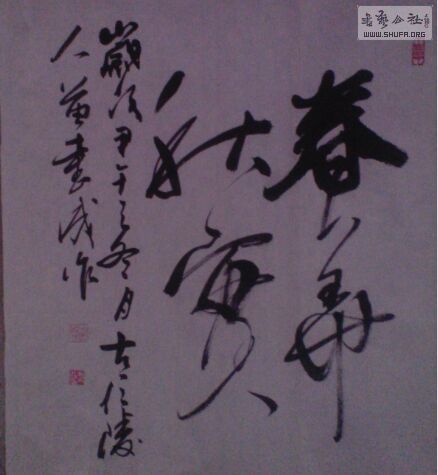 春華
秋實
歲次甲午之冬月古仁陵
人書成作
書藝公社
WWW.SHUFA.ORG